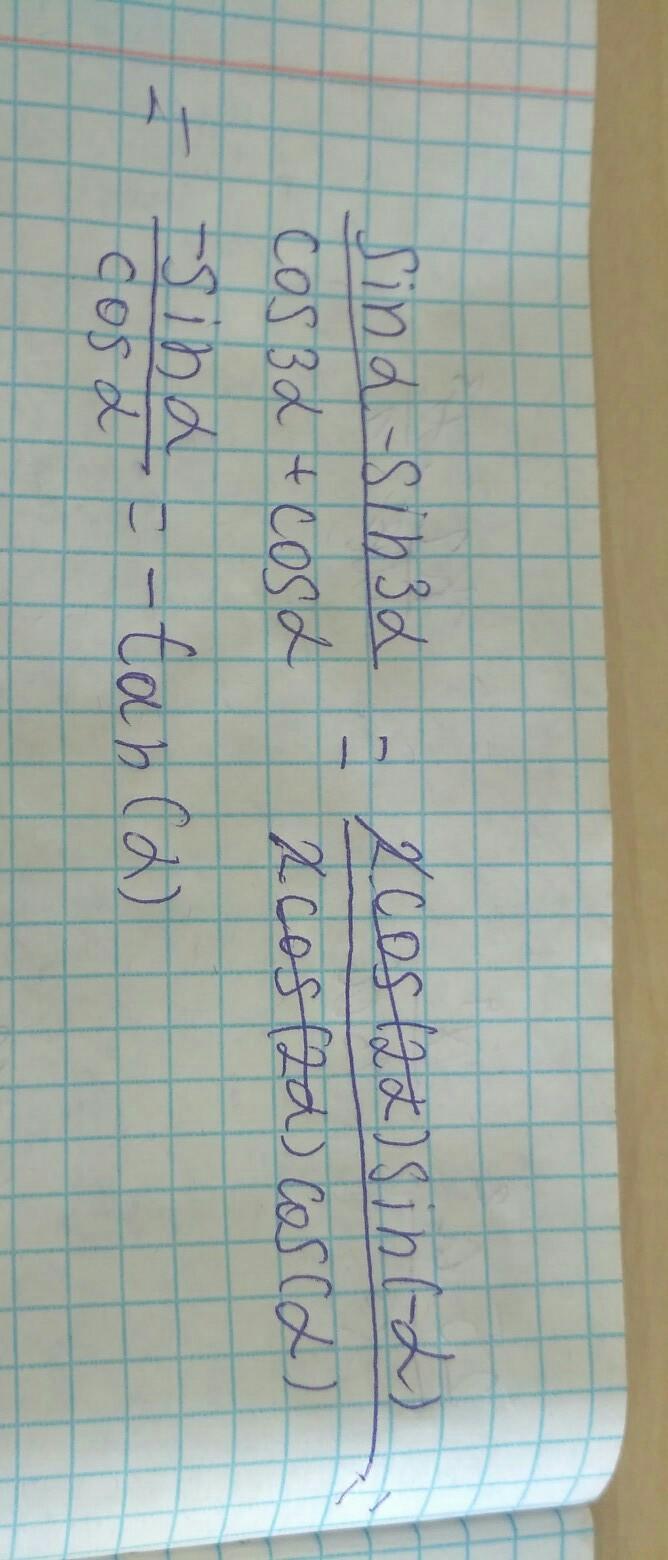 sin α - sin 3α / cos 3α + cos α = 2 cos(2α) sin(-α) / 2 cos(2α) cos(α) =
= -sin α / cos α = - tan(α)